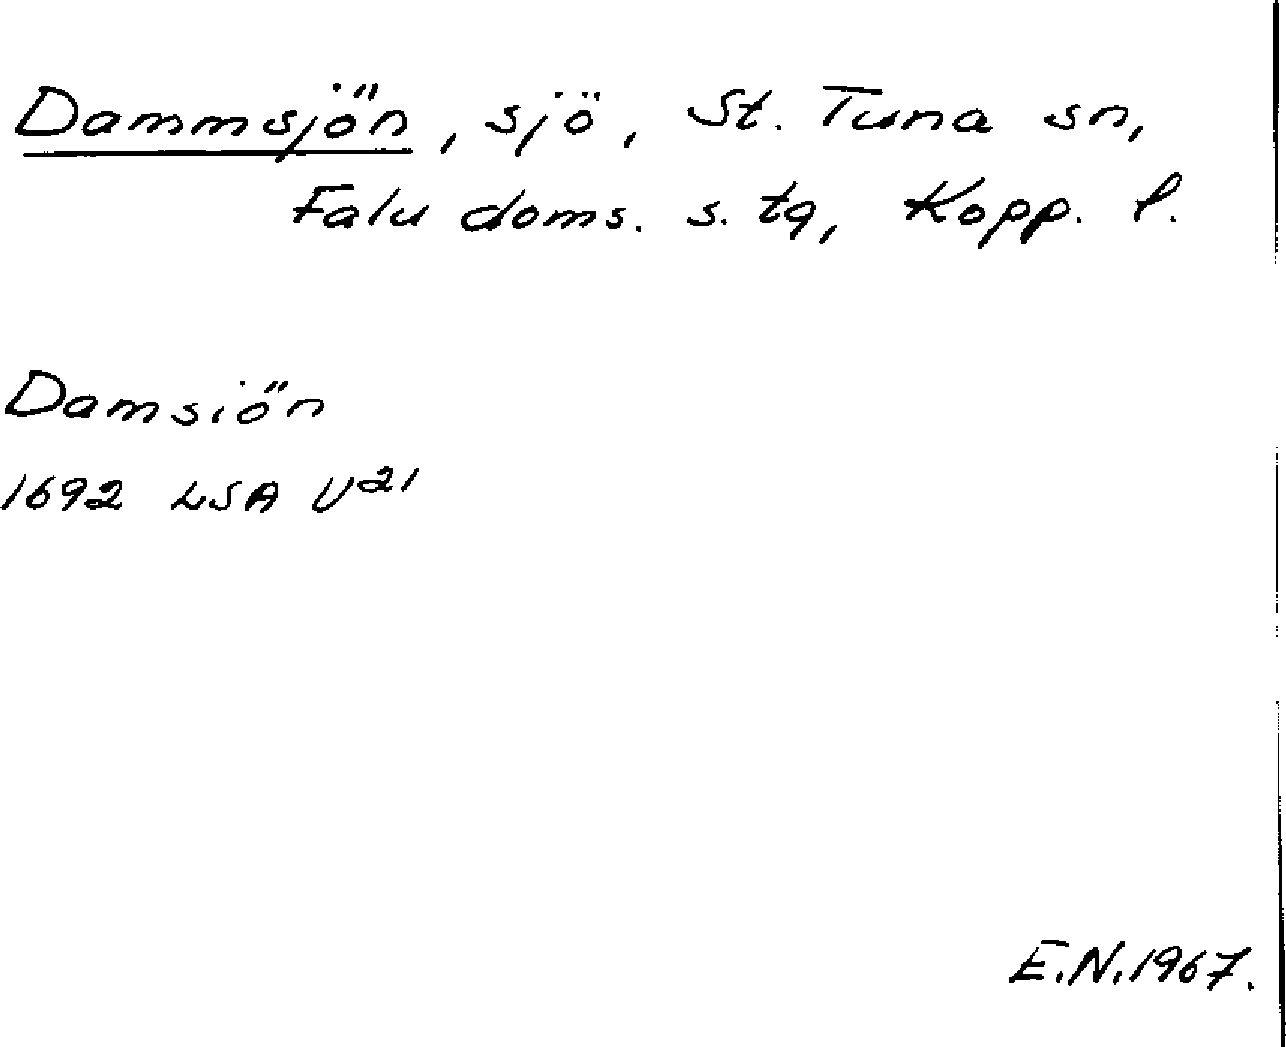 Dammsjön, sjö, St. Tuna sn,
Falu doms. s. tg, Kopp. l.
Damsiön
1692 LSA U²¹
E.N.1967.